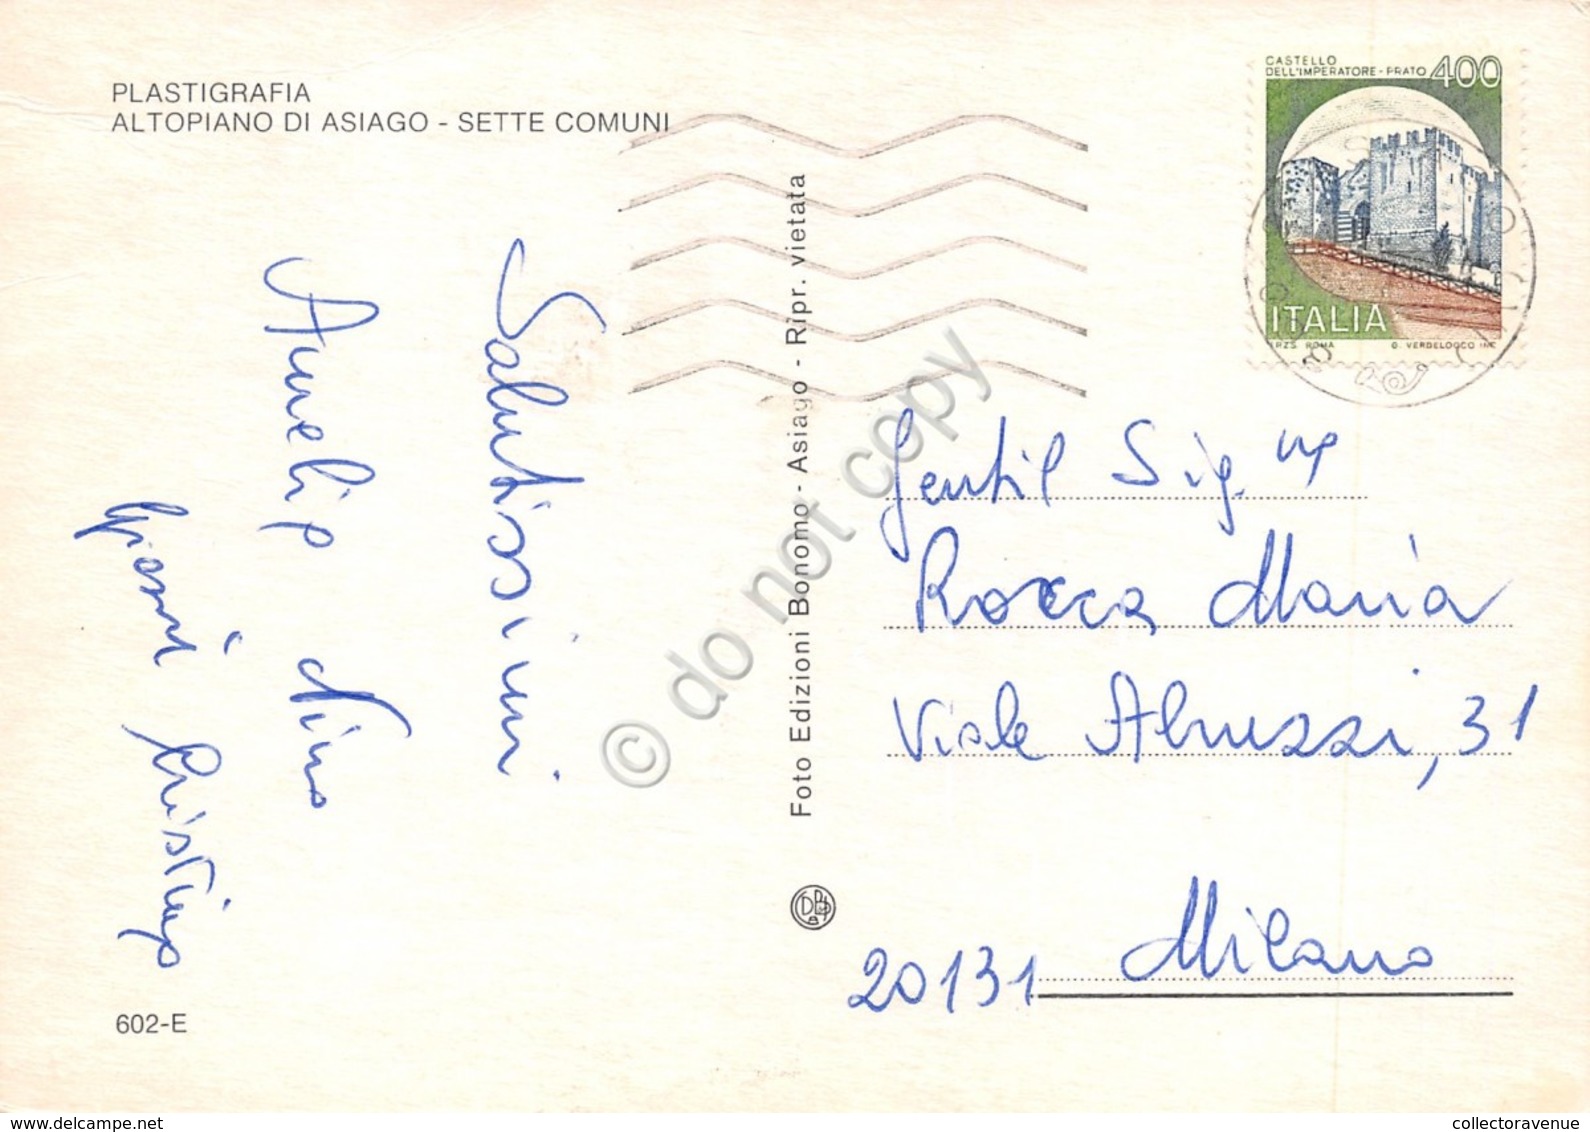 PLASTIGRAFIA
ALTOPIANO DI ASIAGO - SETTE COMUNI
Salutissimi
Aurelio Nino
Gianni Cristina
602-E
Foto Edizioni Bonomo - Asiago - Ripr. vietata
© do not copy
CASTELLO
DELL'IMPERATORE - PRATO 400
ITALIA
I.P.Z.S. ROMA
Gentil Sig.
Rocca Maria
Viale Abruzzi, 31
20131 Milano
collectoravenue